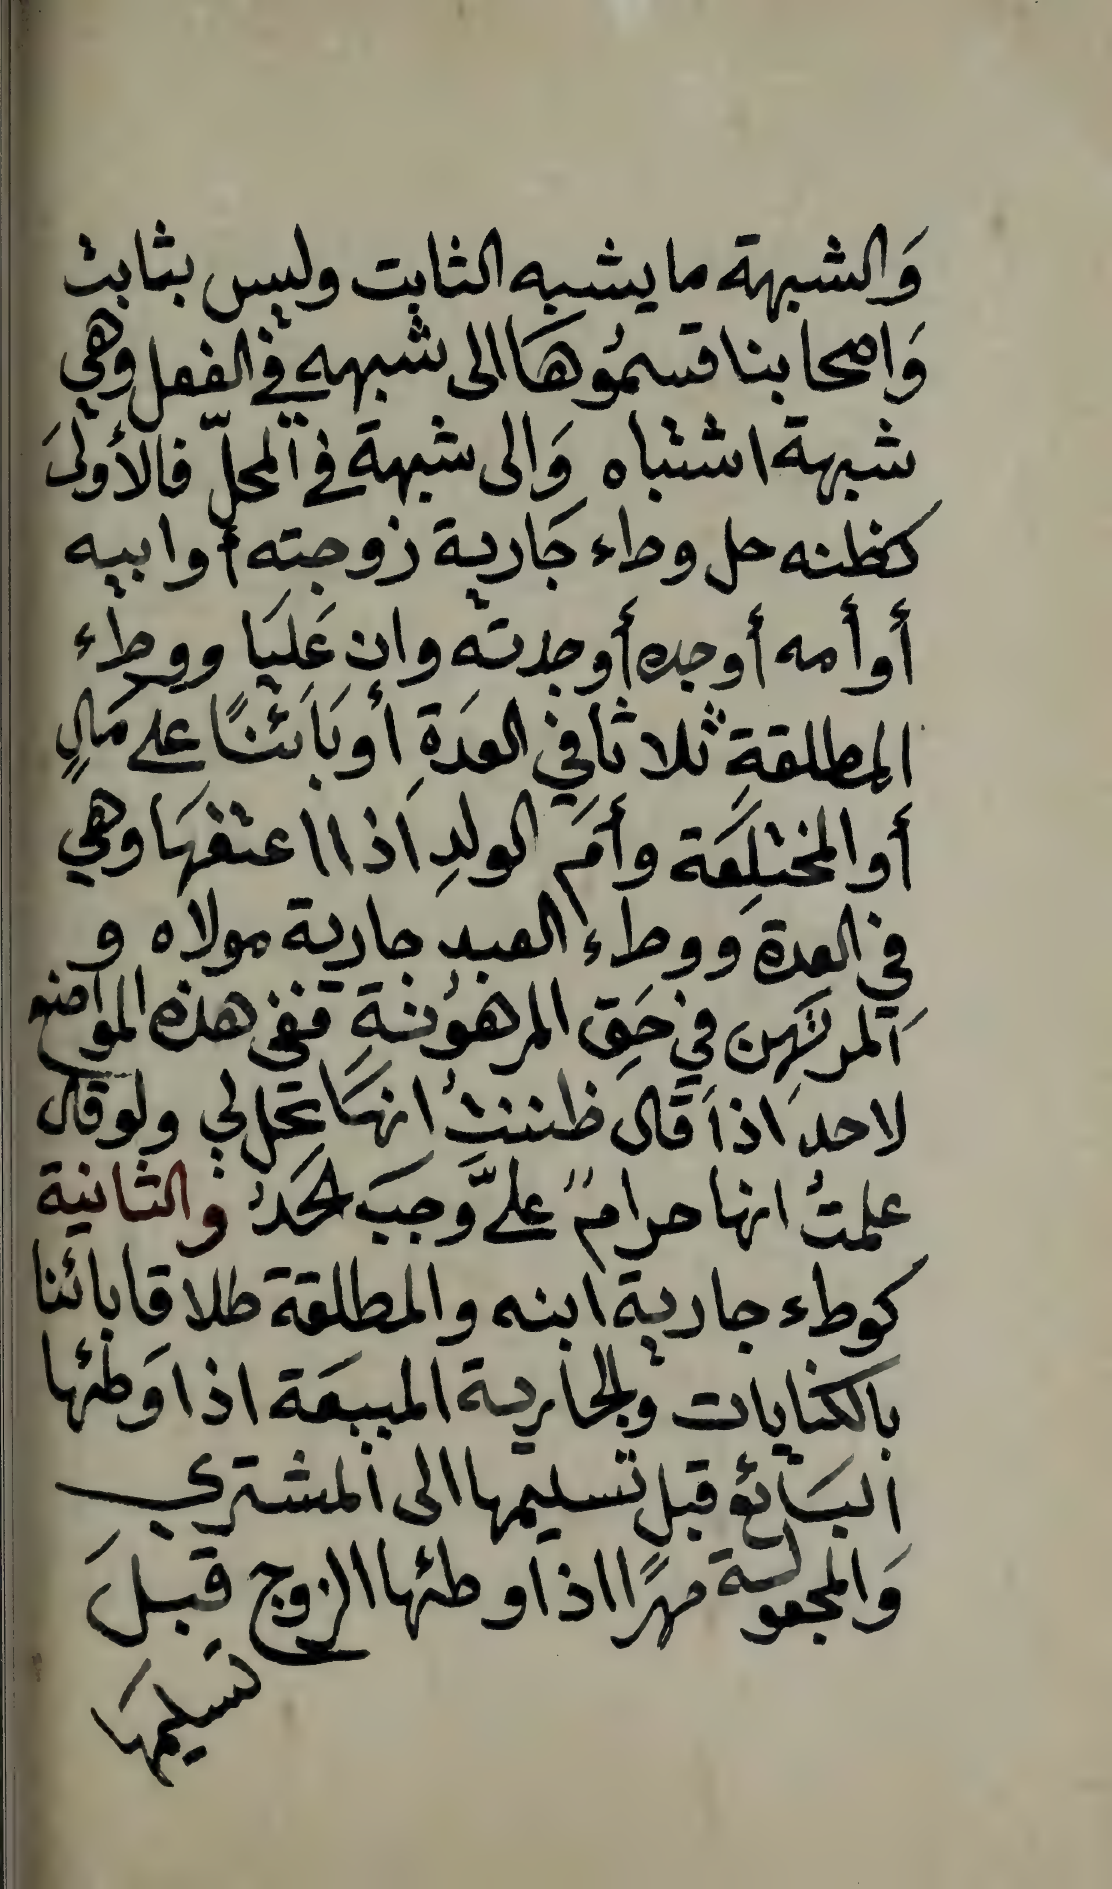 وَالشبهة ما يشبه الثابت وليس بثابت
وَاصحابنا قسموُها الى شبهه في الفعل وهي
شبهة اشتباه وَالى شبهة في المحلّ فالأولىَ
كظنه حل وطء جَارية زوجته أوابيه
أوأمه أوجده أوجدته وان عَليَا ووطء
المطلقةِ ثلاثا في العدَةِ أو بَائنًا على مَالٍ
أو المختلِعَة وأمَ الولدِ اذا اعتقهَا وهي
في العدة ووطء العبد جارية مولاه و
المرتَهِن في حَقِ المرهوُنة ففي هذه المواضع
لاحدَ اذا قال ظننتُ انهَا تحل لي ولو قال
علمتُ انها حرامٌ عليَّ وَجبَ الحَدُ والثانية
كوطء جارية ابنه والمطلقة طلاقا بائنا
بالكنايات والجارية المبيعَة اذا وَطئها
البَائع قبل تسليمها الى المشتري
وَالمجعولة مهرًا اذا وطئها الزوج قبلَ
تسليمهَا